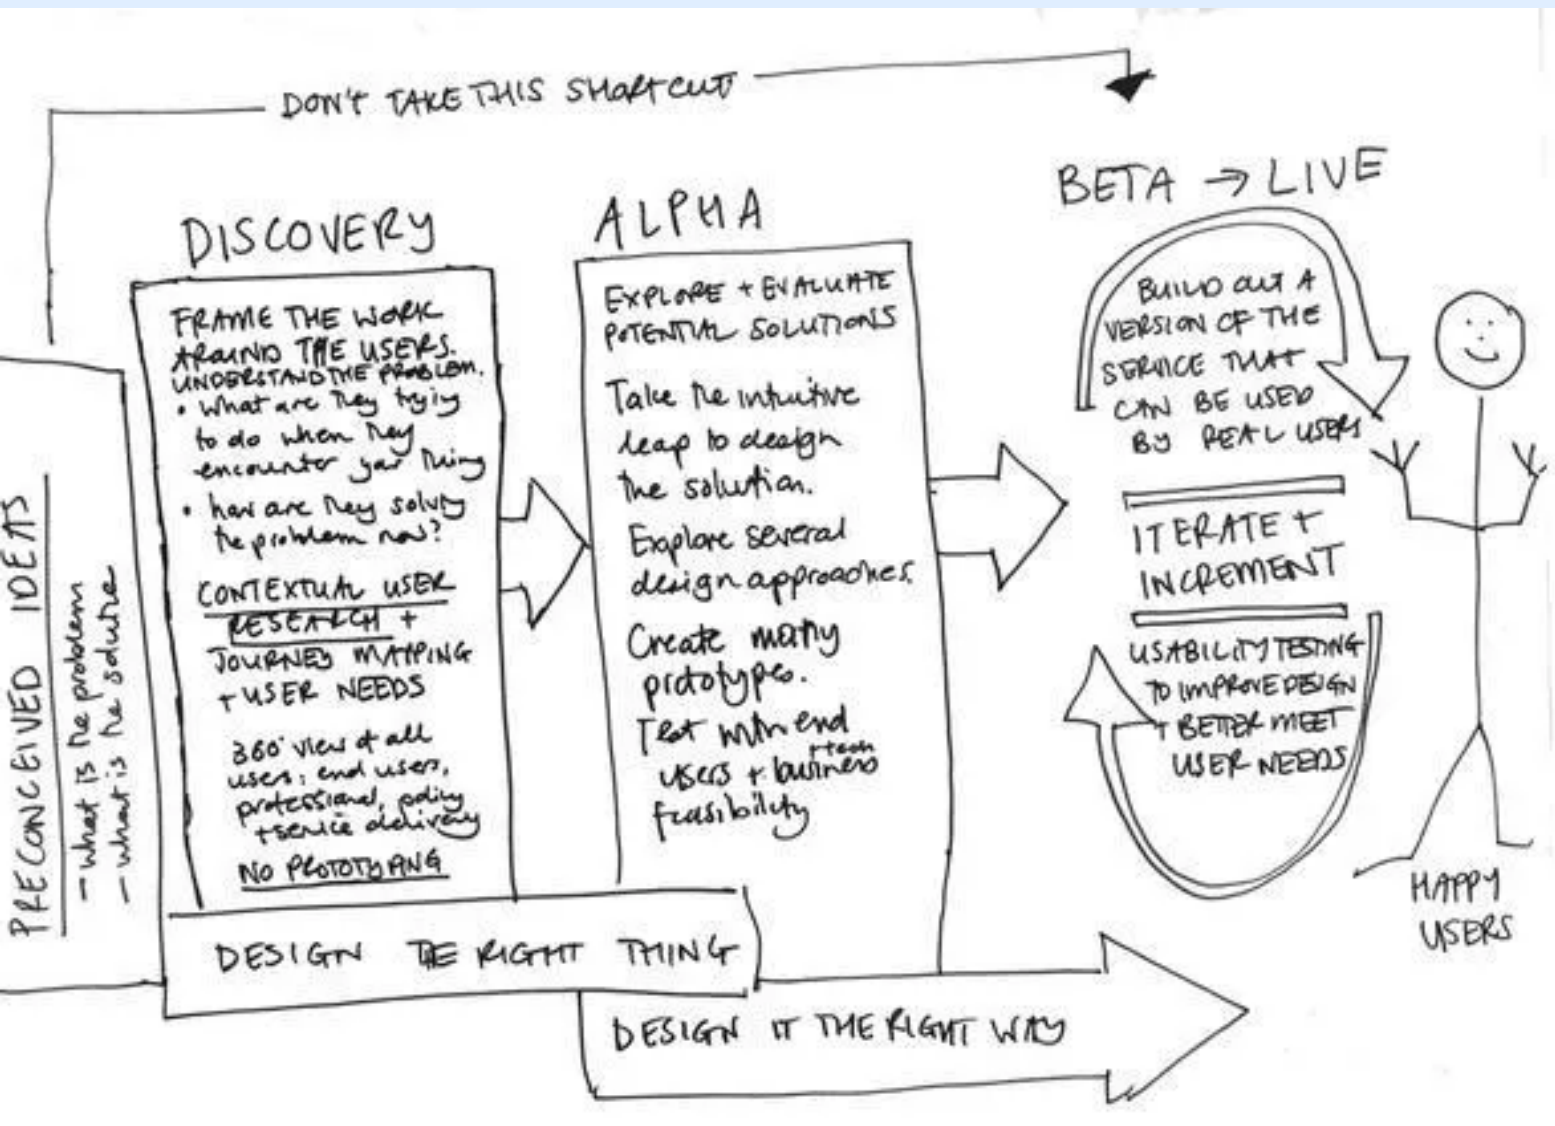 DON'T TAKE THIS SHORTCUT
PRECONCEIVED IDEAS
- what is the problem
- what is the solution
DISCOVERY
FRAME THE WORK
AROUND THE USERS.
UNDERSTAND THE PROBLEM.
• What are they trying
to do when they
encounter your thing
• how are they solving
the problem now?
CONTEXTUAL USER
RESEARCH +
JOURNEY MAPPING
+ USER NEEDS
360° view of all
users; end users,
professional, policy
+ service delivery
NO PROTOTYPING
ALPHA
EXPLORE + EVALUATE
POTENTIAL SOLUTIONS
Take the intuitive
leap to design
the solution.
Explore several
design approaches.
Create many
prototypes.
Test with end
users + business
+ tech
feasibility
BETA → LIVE
BUILD OUT A
VERSION OF THE
SERVICE THAT
CAN BE USED
BY REAL USERS
ITERATE +
INCREMENT
USABILITY TESTING
TO IMPROVE DESIGN
+ BETTER MEET
USER NEEDS
HAPPY
USERS
DESIGN THE RIGHT THING
DESIGN IT THE RIGHT WAY